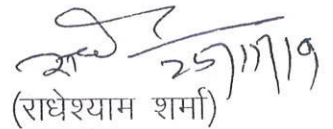 राधे
25/11/19
(राधेश्याम शर्मा)